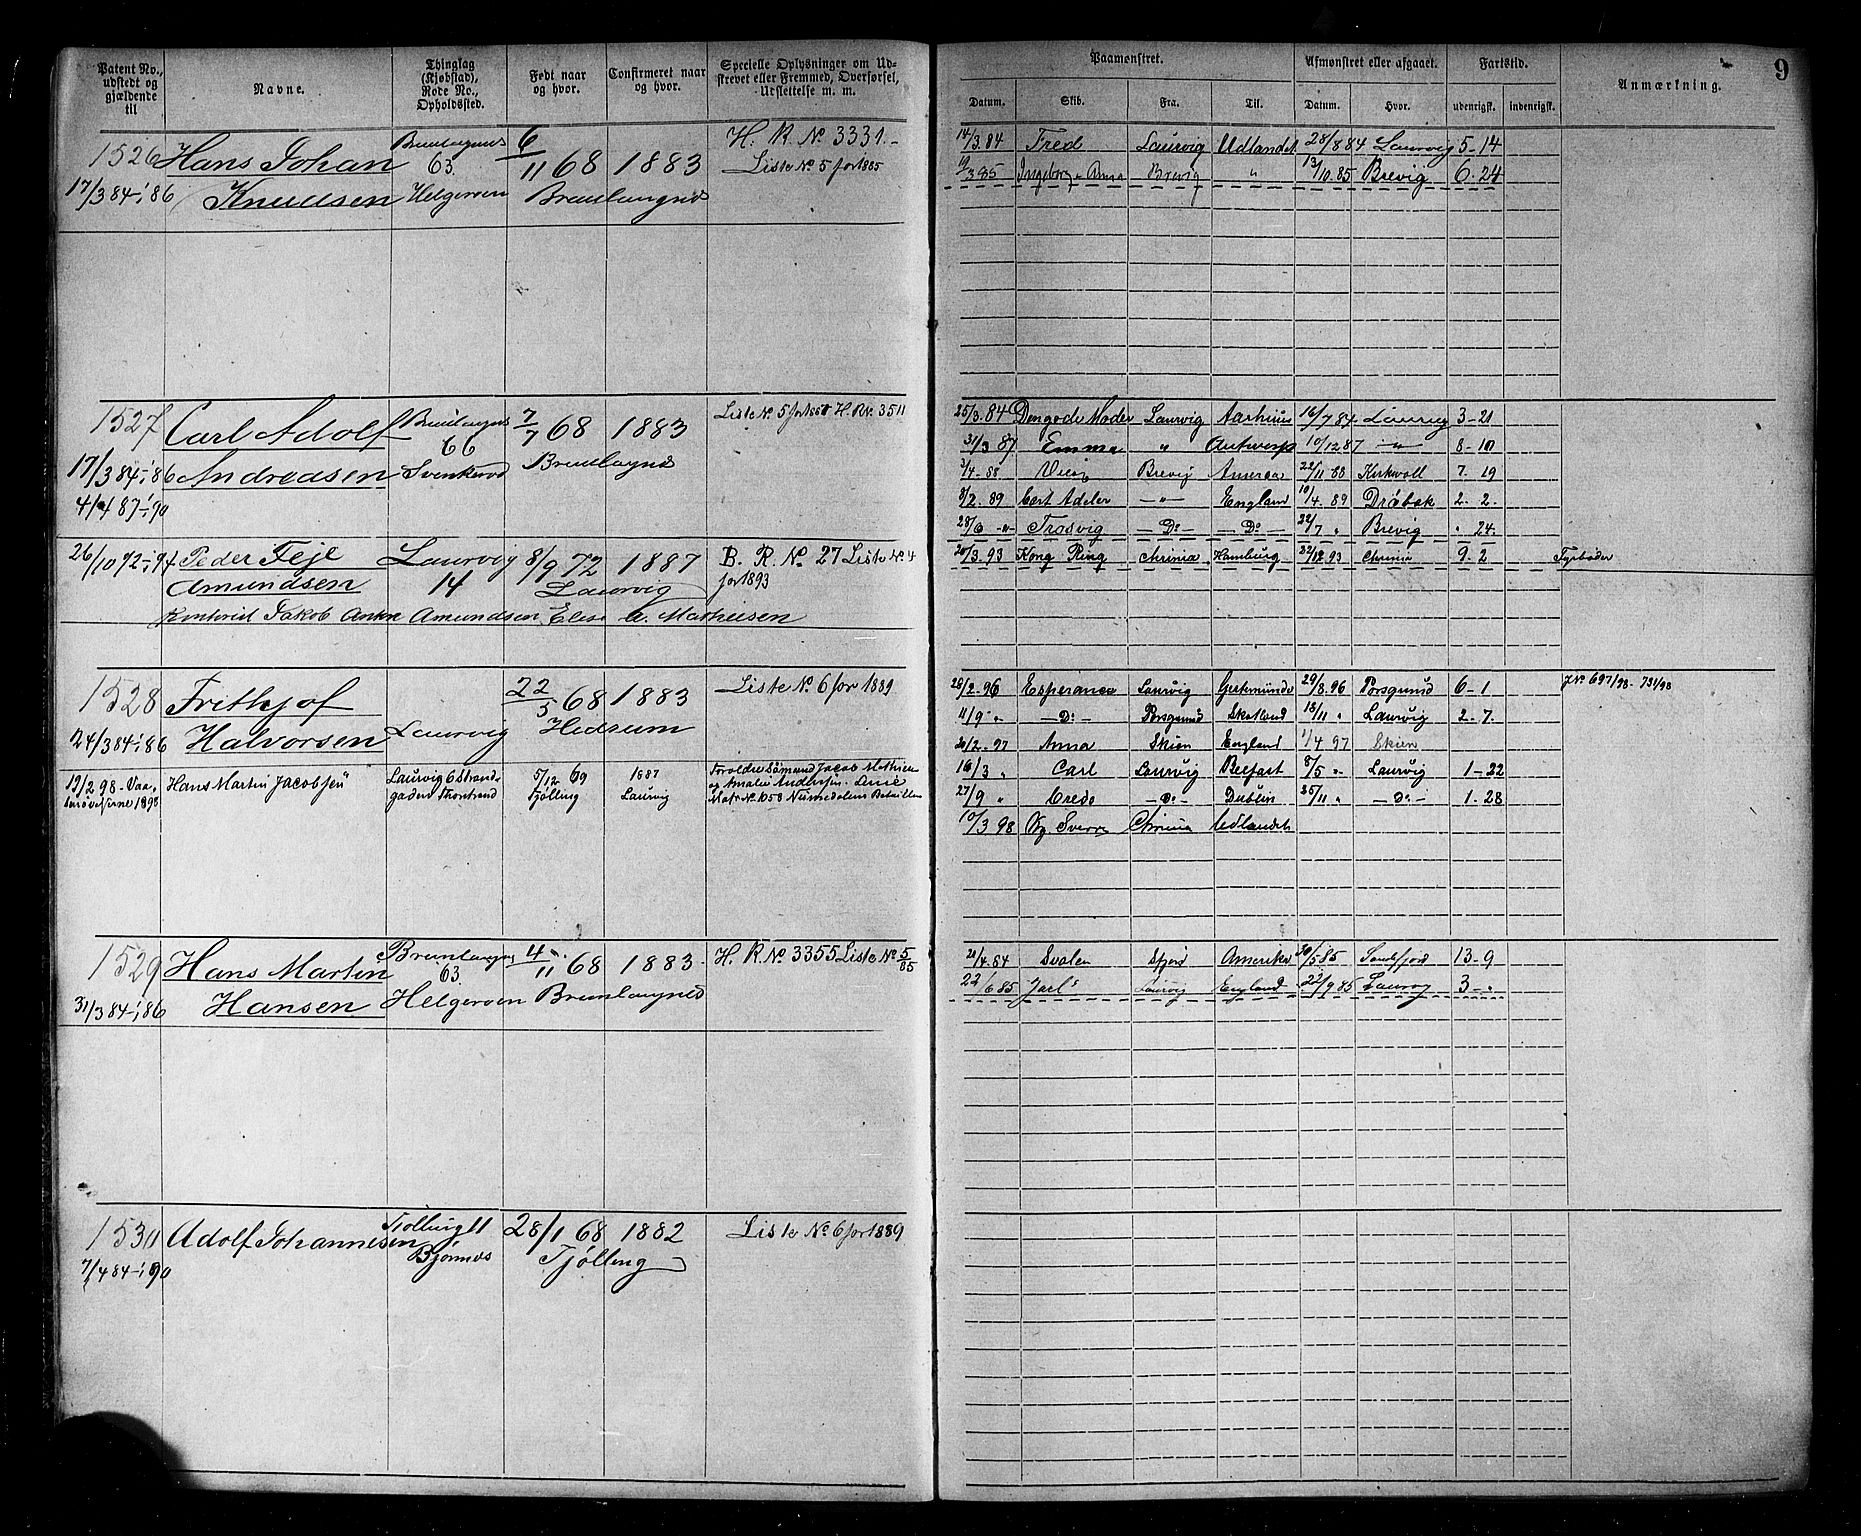 Patent No., udstedt og gjældende til
Navne.
Thinglag (Kjøbstad), Rode No., Opholdssted.
Født naar og hvor.
Confirmeret naar og hvor.
Specielle Oplysninger om Udskrevet eller Fremmed, Overførsel, Udslettelse m. m.
1526 Hans Johan 63. 6/11 68 1883 H. R No 3331.-
Liste No 5 for 1885
17/3 84-i 86 Knudsen Helgeroen
1527 Carl Adolf 66 7/7 68 1883 Liste No 5 for H. R No 3511
17/3 84-i 86 Andredsen
4/4 87-i 90
26/10 92-i 94 Peder Teje Laurvig 8/9 72 1887 B. R. No 27 Liste No 4
Amundsen 14 Laurvig for 1893
Jakob Amundsen, Elise
1528 Frithjof 22/5 68 1883 Liste No 6 for 1889
24/3 84-i 86 Halvorsen Laurvig Hedrum
19/2 98 Hans Martin Jacobsen Laurvig 5/12 69 1887
Tjølling Laurvig
Matr No 1058 Numedalens
1529 Hans Martin 63. 4/11 68 1883. H. R No 3355 Liste No 5/85
31/3 84-i 86 Hansen Helgeroen
1530 Adolf Johannesen Tjølling 11 28/1 68 1882 Liste No 6 for 1889
7/4 84-i 90 Bjønnes Tjølling
9
Paamønstret.
Afmønstret eller afgaaet.
Fartstid.
Anmærkning.
Datum. Skib. Fra. Til. Datum. Hvor. udenrigsk. indenrigsk.
14/3 84 Fred Laurvig Udlandet 28/8 84 Laurvig 5-14
3 85 Anna Brevig " 13/10. 85 Brevig 6-24
25/3. 84 Dengode Moder Laurvig Aarhuus 16/7 84 Laurvig 3-21
31/3 87 Emma " Antwerp 10/12 87 -"- 8-10
88 Brevig 22/11 88 Kirkwall 7. 19
8/2. 89 Adeler -"- England 10/4. 89 Drøbak 2. 2.
28/6 -"- Trosvig -Do- -Do- 22/7 " Brevig " 24.
20/3. 93 Kong Ring Chrinia Hamburg 22/12 93 Chrinia 9. 2 Fyrbøder
20/2. 96 Esperance Laurvig Gestemünde 29/8. 96 Porsgrund 6-1 J No 697/98 - 734/98
11/9 " -Do- Porsgrund Skotland 18/11 " Laurvig 2-7.
20/2. 97 Anna Skien England 1/4 97 Skien
16/3 " Carl Laurvig Belfast 8/5 " Laurvig 1-22
27/9 " Credo -Do- Dublin 25/11 " -Do- 1-28
10/3 98 Kg Sverre Chrinia Udlandet
21/4. 84 Svalen Amerika 20/5 85 Sandefjord 13-9
22/6 85 Jarl Laurvig England 22/9 85 Laurvig 3-"